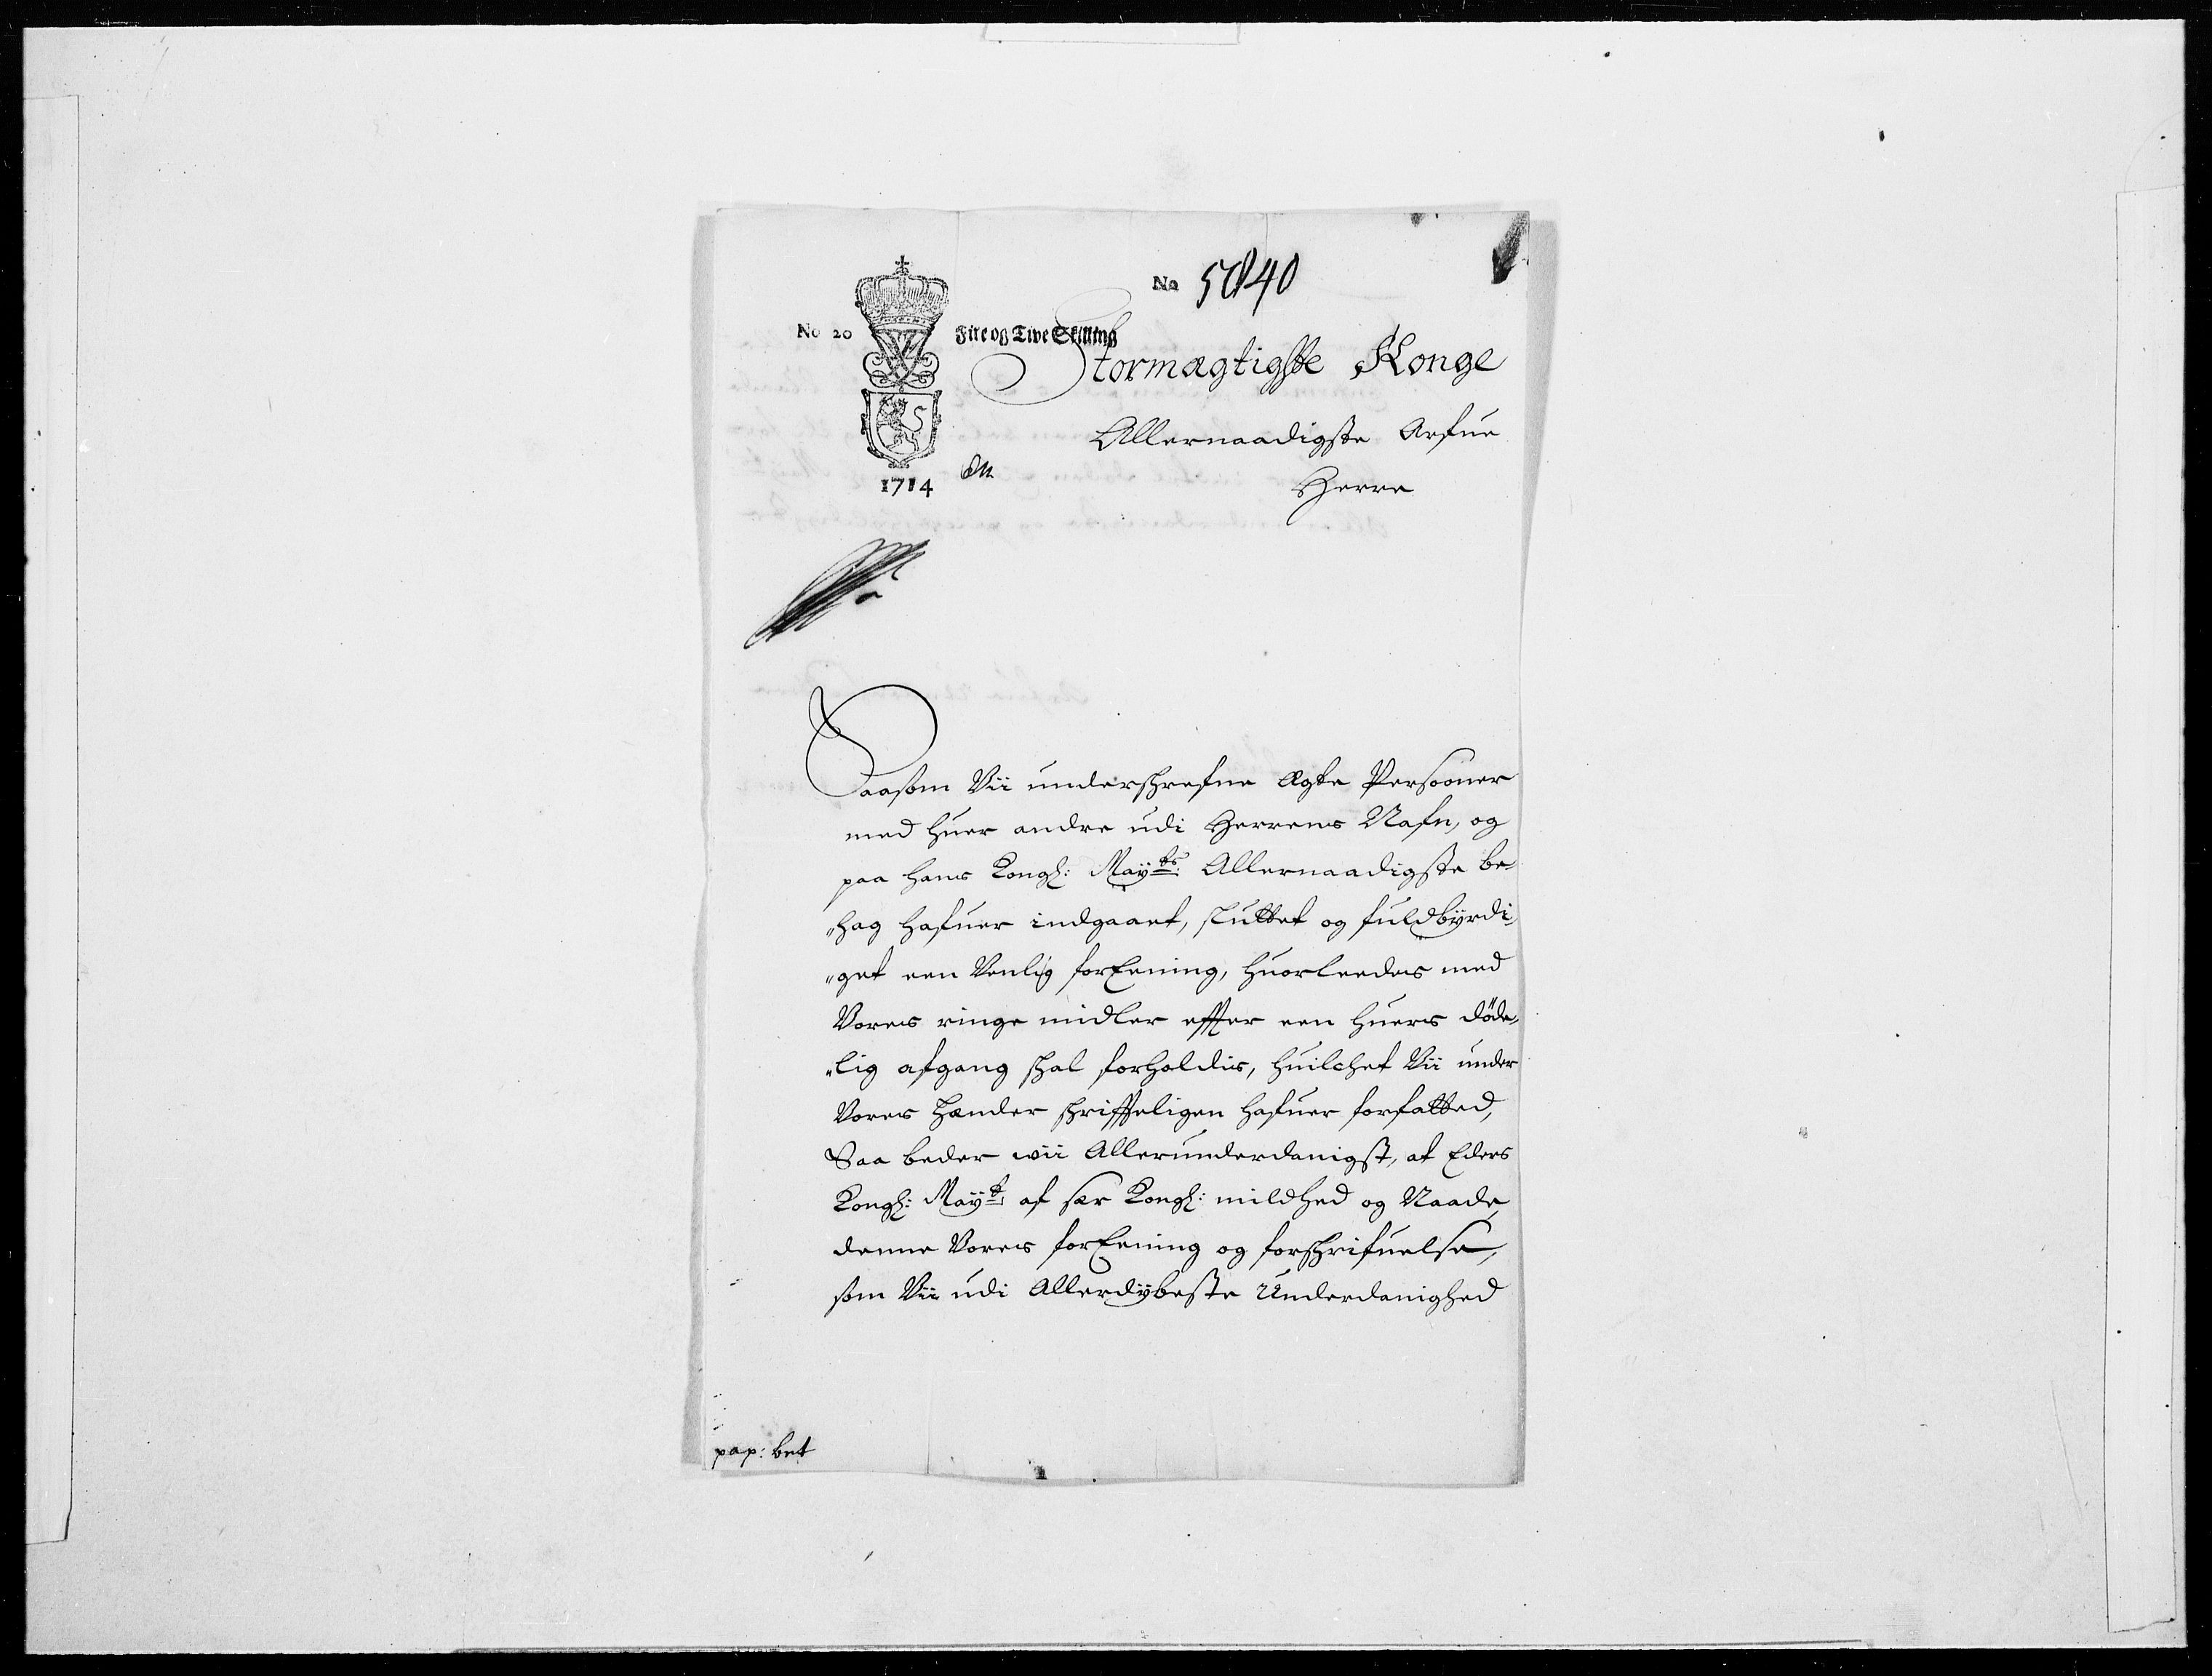 No 5840
No 20 Fire og Tive Skilling
Stormægtigste Konge
Allernaadigste Arfue
Herre
1714
Saasom Vii underschrefne Ægte Persooner
med huer andre udi Herrens Nafn, og
paa hans Kongl: Mayts: Allernaadigste be¬
„hag hafuer indgaaet, sluttet og fuldbÿrdi¬
„get een Venlig forEening, huorleedes med
Vores ringe midler efter een huers døde¬
„lig afgang schal forholdis, huilchet Vii under
Vores hænder schrifteligen hafuer forfatted,
Saa beder wii Allerunderdanigst, at Eders
Kongl: Mayt: af sær Kongl: mildhed og Naade,
denne Vores forEening og forschrifuelse,
som Vii udi Allerdÿbeste Underdanighed
pap: bet